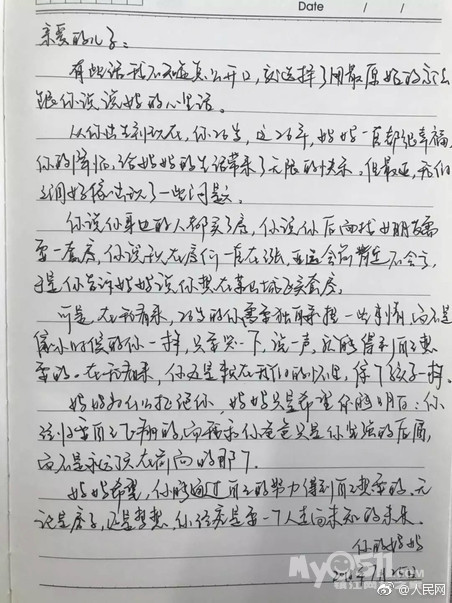 Date / /
亲爱的儿子：
有些话我不知道怎么开口，就选择了用最原始的方法
跟你说说妈妈的心里话。
从你出生到现在，你26岁，这26年，妈妈一直都很幸福，
你的降临，给妈妈的生活带来了无限的快乐。但最近，我们
之间好像出现了一些问题。
你说你身边的人都买了房，你说你后面找女朋友需
要一套房，你说现在房价一直在涨，
于是你告诉妈妈说你想在某山城区买套房。
可是，在我看来，26岁的你需要独自承担一些事情，而不是
像小时候的你一样，只要哭一下，说一声，就能得到自己想
要的。在我看来，你还是躲在我们的怀里，像个孩子一样。
妈妈为什么拒绝你，妈妈只是希望你能明白：你
终归要自己飞翔的，而我和你爸爸只是你坚强的后盾，
而不是永远冲在前面的那个。
妈妈希望，你能通过自己的努力得到自己想要的，无
论是房子，还是梦想，你终究是要一个人走向未知的未来。
你的妈妈
My0511
镇江网友
@人民网